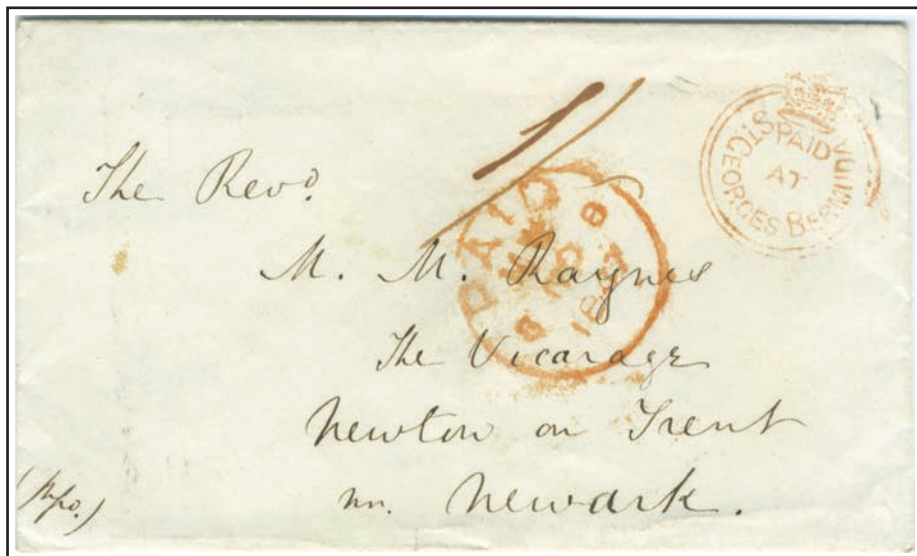 1/
PAID AT ST. GEORGES BERMUDA
The Revd.
PAID
1857
M. M. Raynes
The Vicarage
Newton on Trent
nr. Newark.